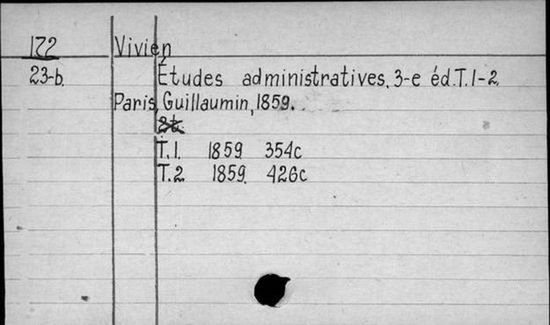 172 Vivien
23-b. Études administratives, 3-e éd. T. 1-2.
Paris, Guillaumin, 1859.
2t.
T.1. 1859 354c
T.2 1859. 426c